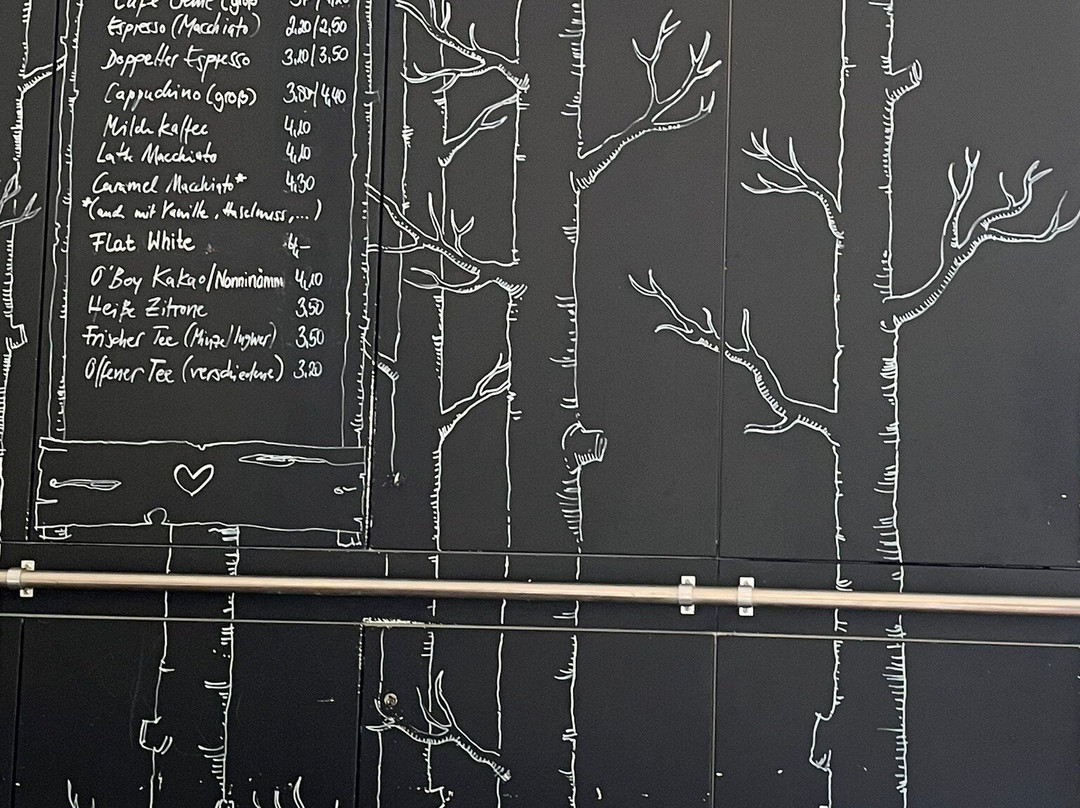 Café Creme (groß)
Espresso (Macchiato) 2,20/2,50
Doppelter Espresso 3,10/3,50
Cappuchino (groß) 3,80/4,40
Milchkaffee 4,10
Latte Macchiato 4,10
Caramel Macchiato* 4,30
*(auch mit Vanille, Haselnuss,...)
Flat White 4,–
O'Boy Kakao/Nomninomm 4,10
Heiße Zitrone 3,50
Frischer Tee (Minze/Ingwer) 3,50
Offener Tee (verschiedene) 3,20